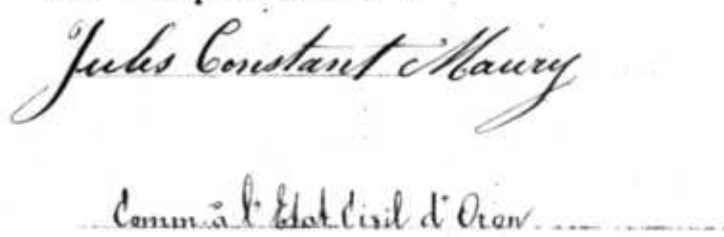 Jules Constant Maury
Comm. à l'Etat Civil d'Oron